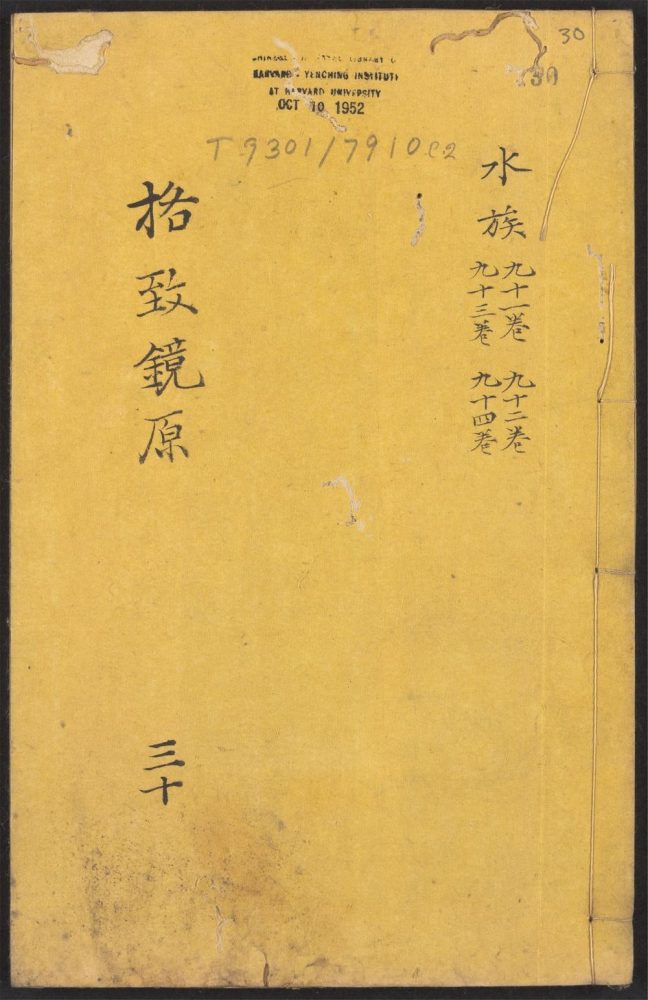 30
30
HARVARD - YENCHING INSTITUTE
AT HARVARD UNIVERSITY
OCT 10 1952
T 9301/7910 C2
水族
九十一卷 九十二卷
九十三卷 九十四卷
格致鏡原
三十